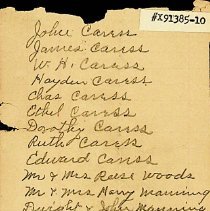 #X91385-10
John Caress
James Caress
W. H. Caress
Hayden Caress
Chas Caress
Ethel Caress
Dorothy Caress
Ruth Caress
Edward Caress
Mr & Mrs Reese Woods
Mr & Mrs Harry Manning
Dwight & John Manning